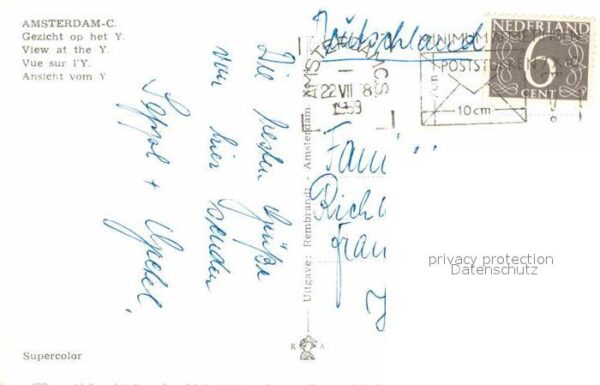 AMSTERDAM-C.
Gezicht op het Y.
View at the Y.
Vue sur l'Y.
Ansicht vom Y
Die besten Grüße
von hier senden
Supercolor
Uitgave: Rembrandt - Amsterdam
R A
Deutschland
AMSTERDAM CS
22 VII 8
1959
POSTST
10 cm
NEDERLAND
6
CENT
Fam
Rich
Fran
privacy protection
Datenschutz